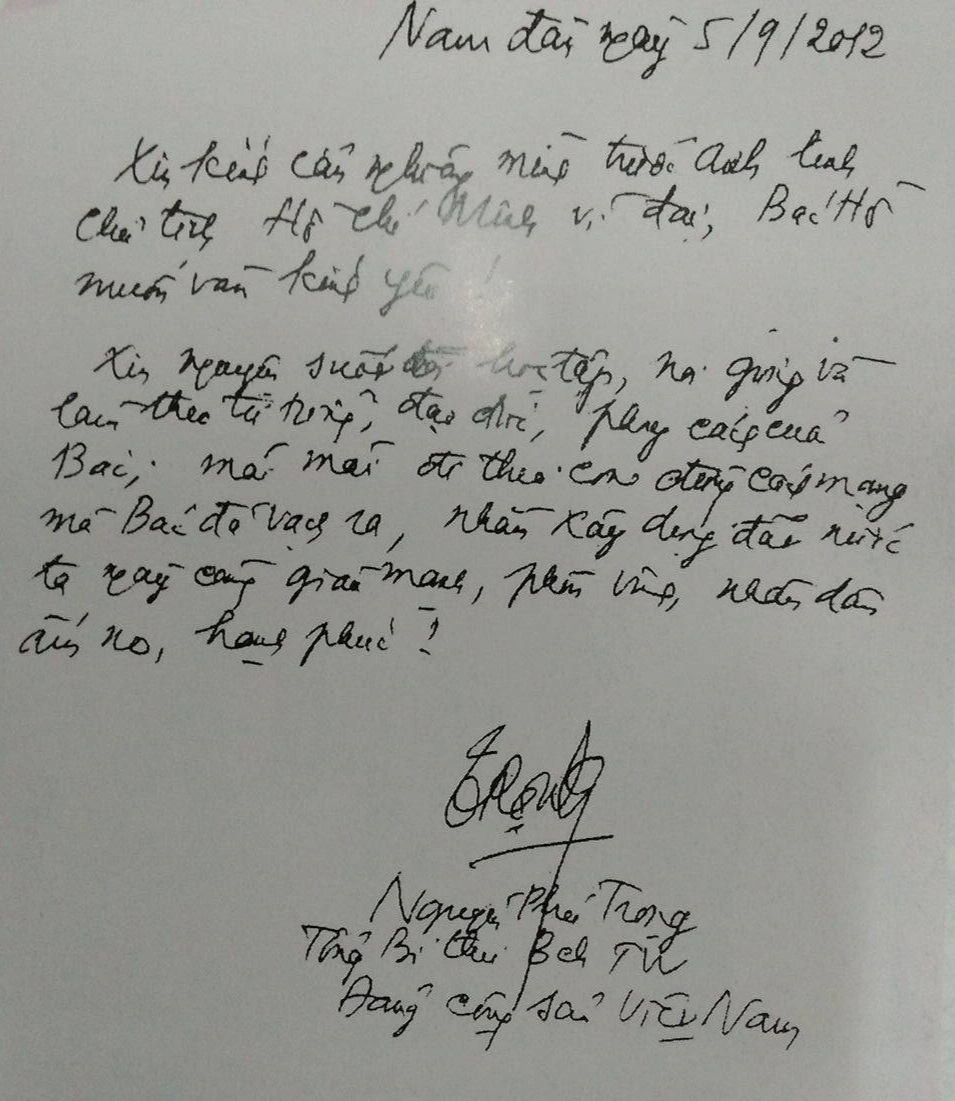 Nam Đàn ngày 5/9/2012
Xin kính cẩn nghiêng mình trước Anh linh
Chủ tịch Hồ Chí Minh vĩ đại, Bác Hồ
muôn vàn kính yêu!
Xin nguyện suốt đời học tập, noi gương và
làm theo tư tưởng, đạo đức, phong cách của
Bác; mãi mãi đi theo con đường cách mạng
mà Bác đã vạch ra, nhằm xây dựng đất nước
ta ngày càng giàu mạnh, phồn vinh, nhân dân
ấm no, hạnh phúc!
Trọng
Nguyễn Phú Trọng
Tổng Bí thư Bch TW
Đảng cộng sản Việt Nam